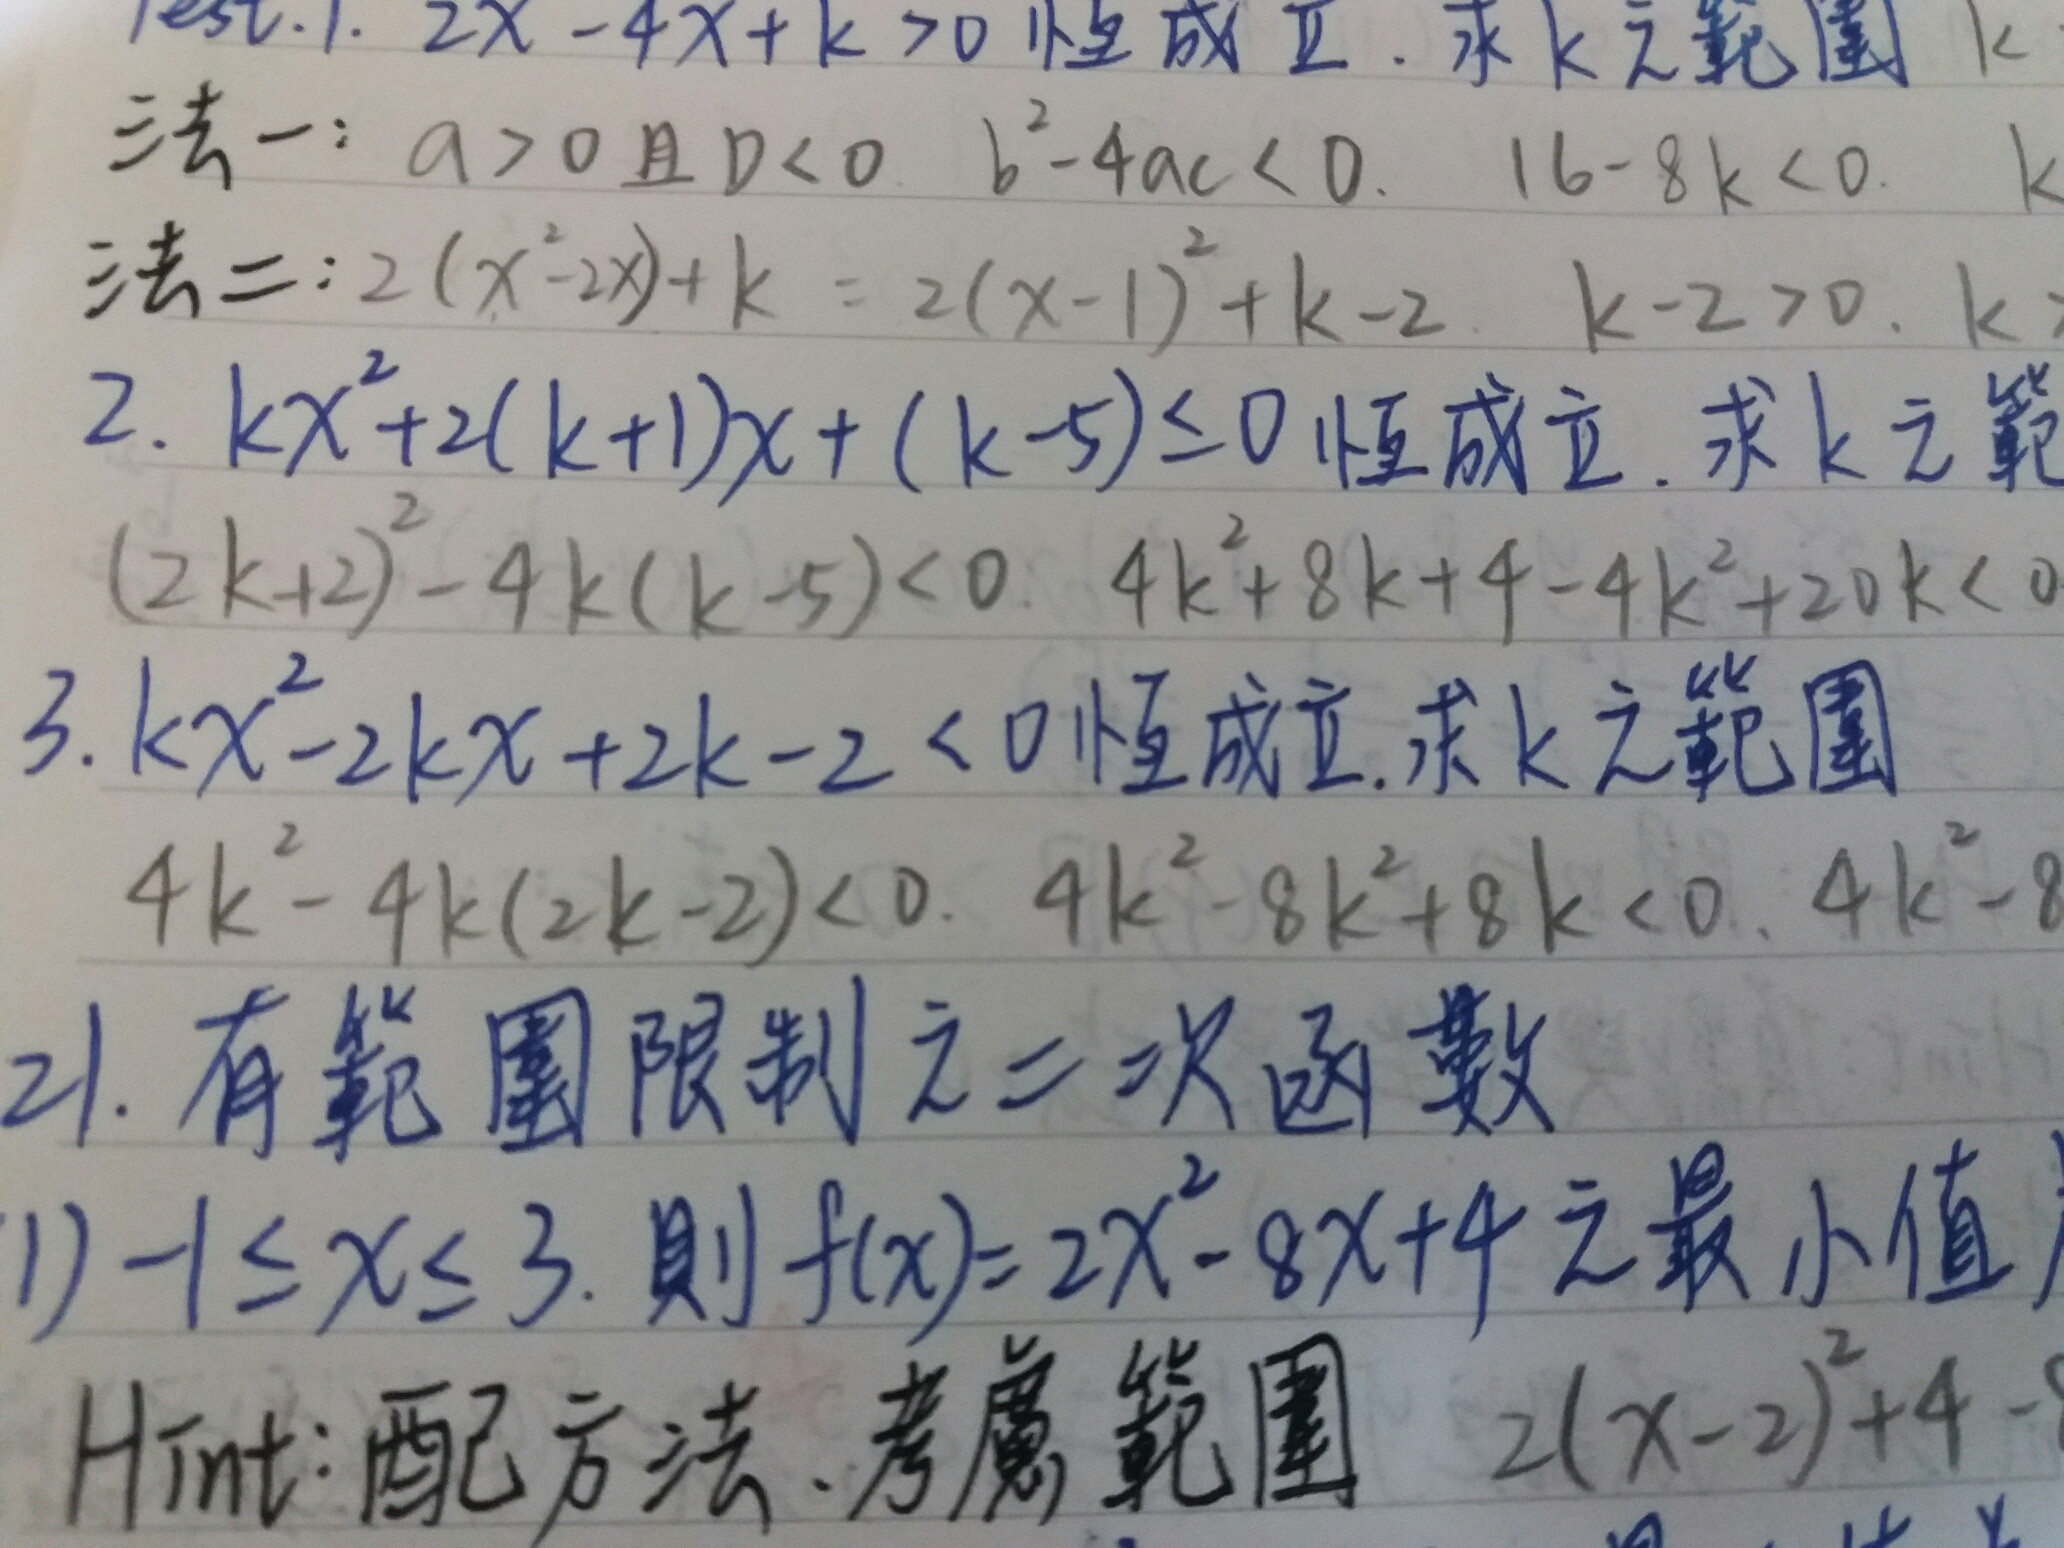 Test.1. 2x - 4x + k > 0 恆成立. 求 k 之範圍 k
法一: a > 0 且 D < 0. b² - 4ac < 0. 16 - 8k < 0. k
法二: 2(x² - 2x) + k = 2(x - 1)² + k - 2. k - 2 > 0. k >
2. kx² + 2(k + 1)x + (k - 5) ≤ 0 恆成立. 求 k 之範
(2k + 2)² - 4k(k - 5) < 0. 4k² + 8k + 4 - 4k² + 20k < 0
3. kx² - 2kx + 2k - 2 < 0 恆成立. 求 k 之範圍
4k² - 4k(2k - 2) < 0. 4k² - 8k² + 8k < 0. 4k² - 8
21. 有範圍限制之二次函數
1) -1 ≤ x ≤ 3. 則 f(x) = 2x² - 8x + 4 之最小值
Hint: 配方法、考慮範圍 2(x - 2)² + 4 - 8